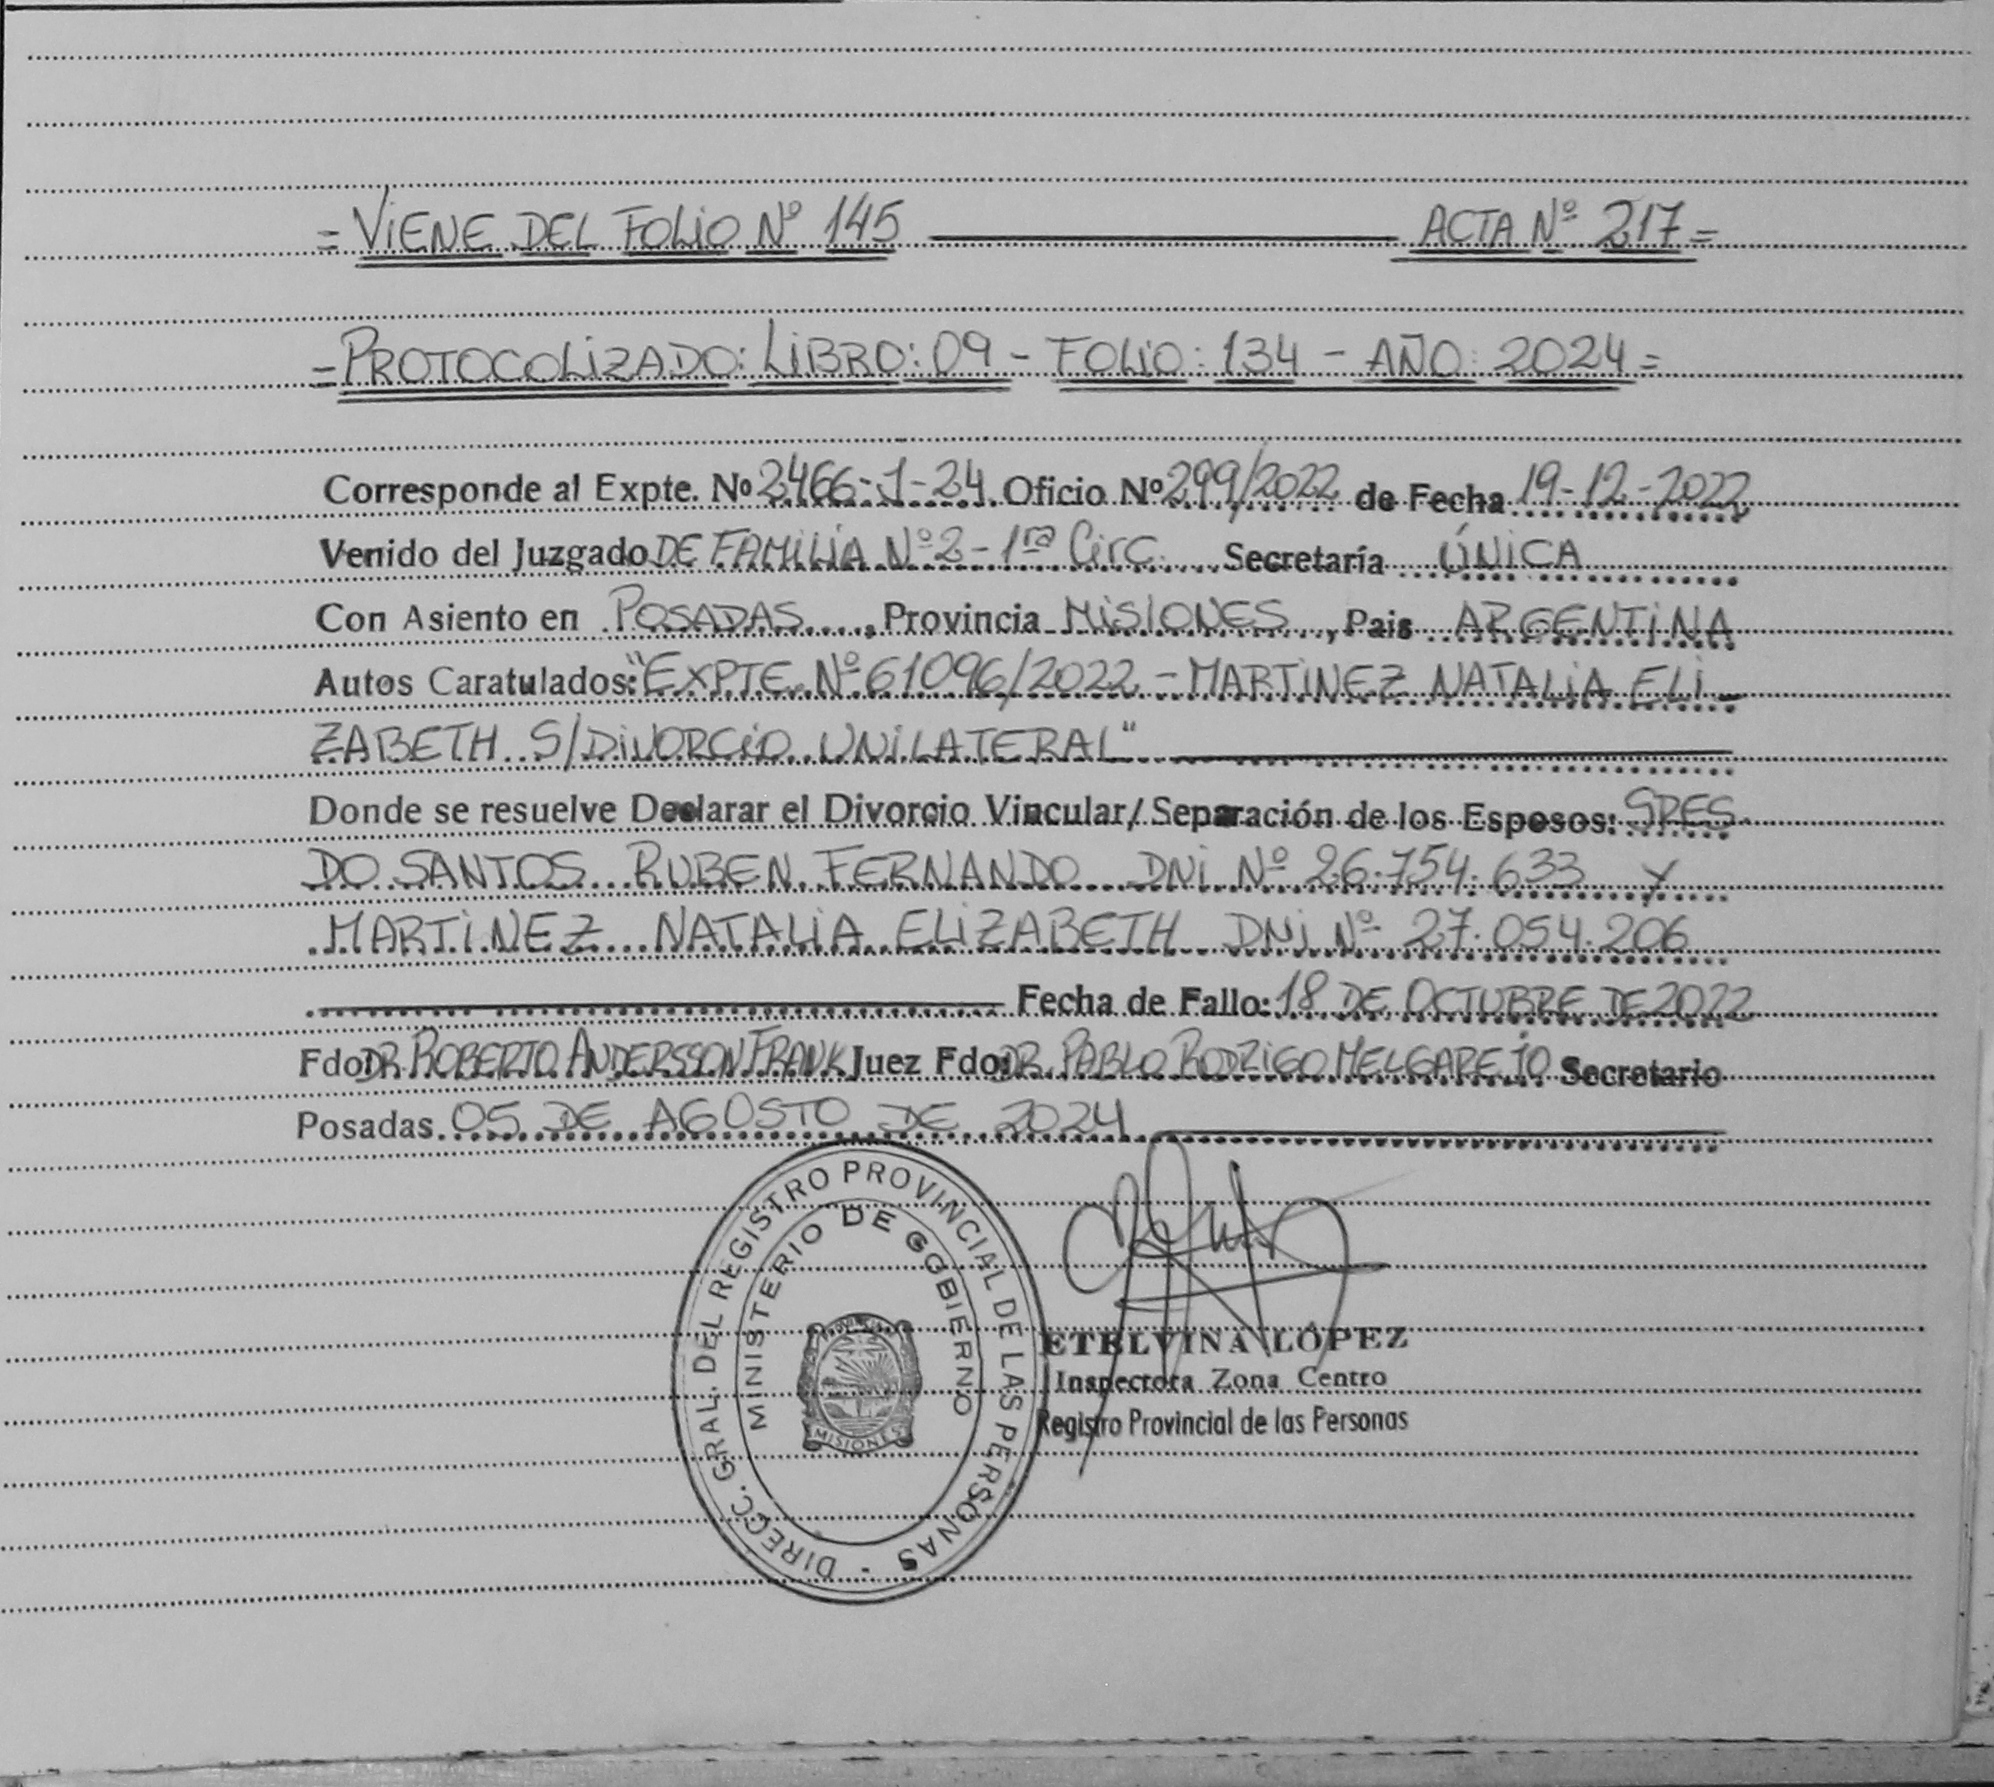 =VIENE DEL FOLIO Nº 145 ACTA Nº 217=
=PROTOCOLIZADO: LIBRO: 09 - FOLIO: 134 - AÑO: 2024=
Corresponde al Expte. Nº 2466-1-24. Oficio Nº 299/2022 de Fecha 19-12-2022
Venido del Juzgado DE FAMILIA Nº 2 - 1ra Circ. Secretaría ÚNICA
Con Asiento en POSADAS, Provincia MISIONES, Pais ARGENTINA
Autos Caratulados: "EXPTE Nº 61096/2022 - MARTINEZ NATALIA ELI-
ZABETH S/DIVORCIO UNILATERAL"
Donde se resuelve Declarar el Divorcio Vincular/Separación de los Esposos: SPES
DO SANTOS RUBEN FERNANDO DNI Nº 26.754.633 y
MARTINEZ NATALIA ELIZABETH DNI Nº 27.054.206
Fecha de Fallo: 18 DE OCTUBRE DE 2022
Fdo: DR. ROBERTO ANDERSSON FRANK Juez Fdo: DR. PABLO RODRIGO MELGAREJO Secretario
Posadas. 05 DE AGOSTO DE 2024
DIRECC. GRAL. DEL REGISTRO PROVINCIAL DE LAS PERSONAS -
MINISTERIO DE GOBIERNO
PROVINCIA
MISIONES
ETELVINA LÓPEZ
Inspectora Zona Centro
Registro Provincial de las Personas